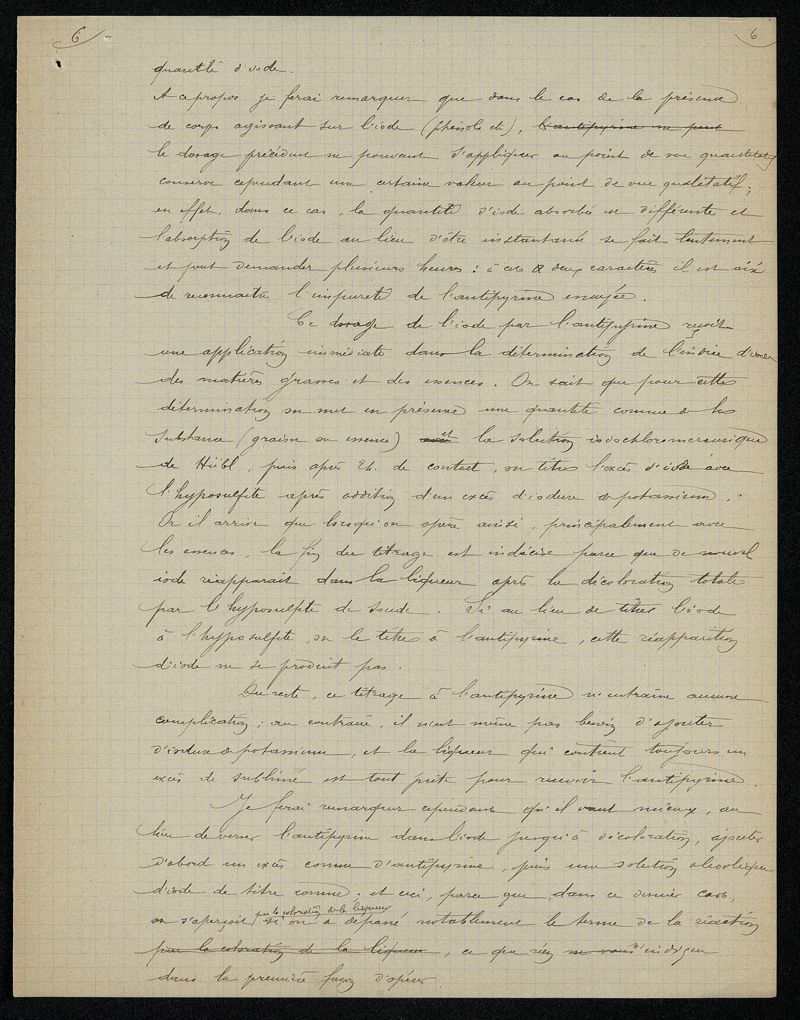 6 6
quantité d'iode.
A ce propos je ferai remarquer que dans le cas de la présence
de corps agissant sur l'iode (phénols etc), l'antipyrine ne peut
le dosage précédent ne pouvant s'appliquer au point de vue quantitatif
conserve cependant une certaine valeur au point de vue qualitatif;
en effet, dans ce cas, la quantité d'iode absorbée est différente et
l'absorption de l'iode au lieu d'être instantanée se fait lentement
et peut demander plusieurs heures : à ces deux caractères il est aisé
de reconnaitre l'impureté de l'antipyrine essayée.
Ce dosage de l'iode par l'antipyrine reçoit
une application immédiate dans la détermination de l'indice d'iode
des matières grasses et des essences. On sait que pour cette
détermination on met en présence une quantité connue de la
substance (graisse ou essence) avec et la solution iodochloromercurique
de Hübl, puis après 24h. de contact, on titre l'excès d'iode avec
l'hyposulfite après addition d'un excès d'iodure de potassium.
Or il arrive que lorsqu'on opère ainsi, principalement avec
les essences, la fin du titrage est indécise parce que de nouvel
iode réapparait dans la liqueur après la décoloration totale
par l'hyposulfite de soude. Si au lieu de titrer l'iode
à l'hyposulfite, on le titre à l'antipyrine, cette réapparition
d'iode ne se produit pas.
Du reste, ce titrage à l'antipyrine n'entraine aucune
complication; au contraire, il n'est même pas besoin d'ajouter
d'iodure de potassium, et la liqueur qui contient toujours un
excès de sublimé est tout prête pour recevoir l'antipyrine.
Je ferai remarquer cependant qu'il vaut mieux, au
lieu de verser l'antipyrine dans l'iode jusqu'à décoloration, ajouter
d'abord un excès connu d'antipyrine, puis une solution alcoolique
d'iode de titre connu. et ceci, parce que, dans ce dernier cas,
par la coloration de la liqueur
on s'aperçoit si on a dépassé notablement le terme de la réaction
par la coloration de la liqueur, ce que rien ne vous n'indique
dans la première façon d'opérer